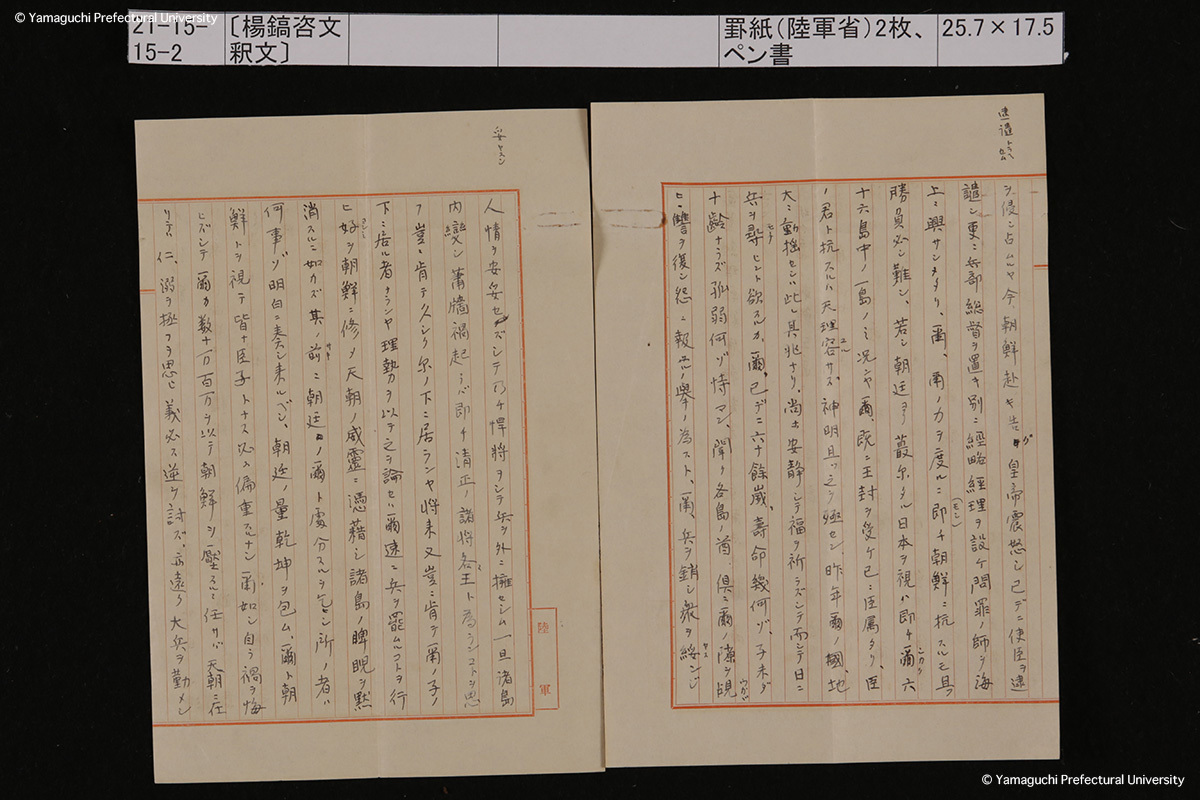 © Yamaguchi Prefectural University
21-15-15-2
〔楊鎬咨文釈文〕
罫紙(陸軍省)2枚、ペン書
25.7×17.5
ヲ侵シ占ムルヤ今朝鮮赴キ告グ皇帝震怒シ已デニ使臣ヲ逮
譴シ更ニ兵部総督ヲ置キ別ニ経略経理ヲ設ケ問罪ノ師ヲ海
上ニ興サシメタリ、爾、爾ノ力ヲ度ルニ即チ朝鮮ニ抗スルモ且ツ
勝負必シ難シ、若シ朝廷ヨリ蕞尓タル日本ヲ視ハ即チ爾六
十六島中ノ一島ノミ況ンヤ爾、既ニ王封ヲ受ケ已ニ臣属タリ、臣
ノ君ト抗スルハ天理容サズ、神明且ツ之ヲ殛セン、昨年爾ノ國、地
大ニ動揺セシハ此レ其兆ナリ、尚ホ安静シテ福ヲ祈ラズシテ而シテ日ニ
兵ヲ尋ヒント欲スルカ、爾、已デニ六十餘歳、壽命幾何ゾ、子未ダ
十齢ナラズ孤弱何ゾ恃マン、聞ク各島ノ酋、倶ニ爾ノ隙ヲ覘
ヒ、讐ヲ復シ怨ニ報ユルノ挙ヲ為スト、爾、兵ヲ銷シ衆ヲ綏ンジ
妥ヤスン
人情ヲ安妥セズシテ乃チ悍将ヲシテ兵ヲ外ニ擁セシム一旦諸島
内變シ蕭牆禍起ラバ即チ清正ノ諸将各王ト為ランコトヲ思
フ豈ニ肯テ久シク尓ノ下ニ居ランヤ将来又豈ニ肯テ爾ノ子ノ
下ニ居ル者タランヤ理勢ヲ以テ之ヲ論セバ爾速ニ兵ヲ罷ムルコトヲ行
ヒ好ヲ朝鮮ニ修メ天朝ノ威靈ニ憑藉シ諸島ノ睥睨ヲ黙
消スルニ如カズ其ノ前ニ朝廷ノ爾ト處分スルヲ乞ヒシ所ノ者ハ
何事ゾ明白ニ奏シ来ルベシ、朝廷ノ量乾坤ヲ包ム、爾ト朝
鮮トヲ視テ皆ナ臣子トナス必ス偏重スルナシ爾如シ自ラ禍ヲ悔
ヒズシテ爾カ数十万百万ヲ以テ朝鮮ヲ壓スルニ任サバ天朝ニ在
リテハ仁、溺ヲ拯フヲ思ヒ義必ス逆ヲ討ズ、亦遠ク大兵ヲ勤メシ
陸軍
© Yamaguchi Prefectural University